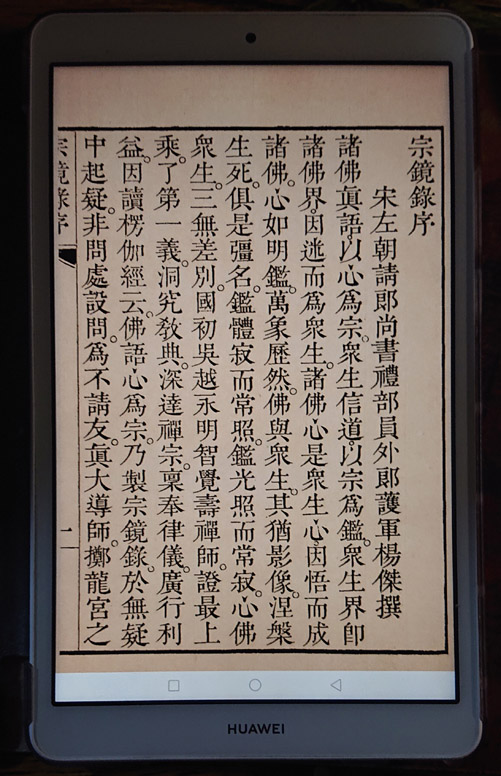 宗鏡錄序
宋左朝請郎尚書禮部員外郎護軍楊傑撰
諸佛眞語。以心爲宗。衆生信道。以宗爲鑑。衆生界卽
諸佛界。因迷而爲衆生。諸佛心是衆生心。因悟而成
諸佛。心如明鑑。萬象歷然。佛與衆生。其猶影像。涅槃
生死。俱是彊名。鑑體寂而常照。鑑光照而常寂。心佛
衆生。三無差別。國初吳越永明智覺壽禪師。證最上
乘。了第一義。洞究敎典。深達禪宗。稟奉律儀。廣行利
益。因讀楞伽經云。佛語心爲宗。乃製宗鏡錄。於無疑
中起疑。非問處設問。爲不請友。眞大導師。擲龍宮之
宗鏡錄序 二
HUAWEI